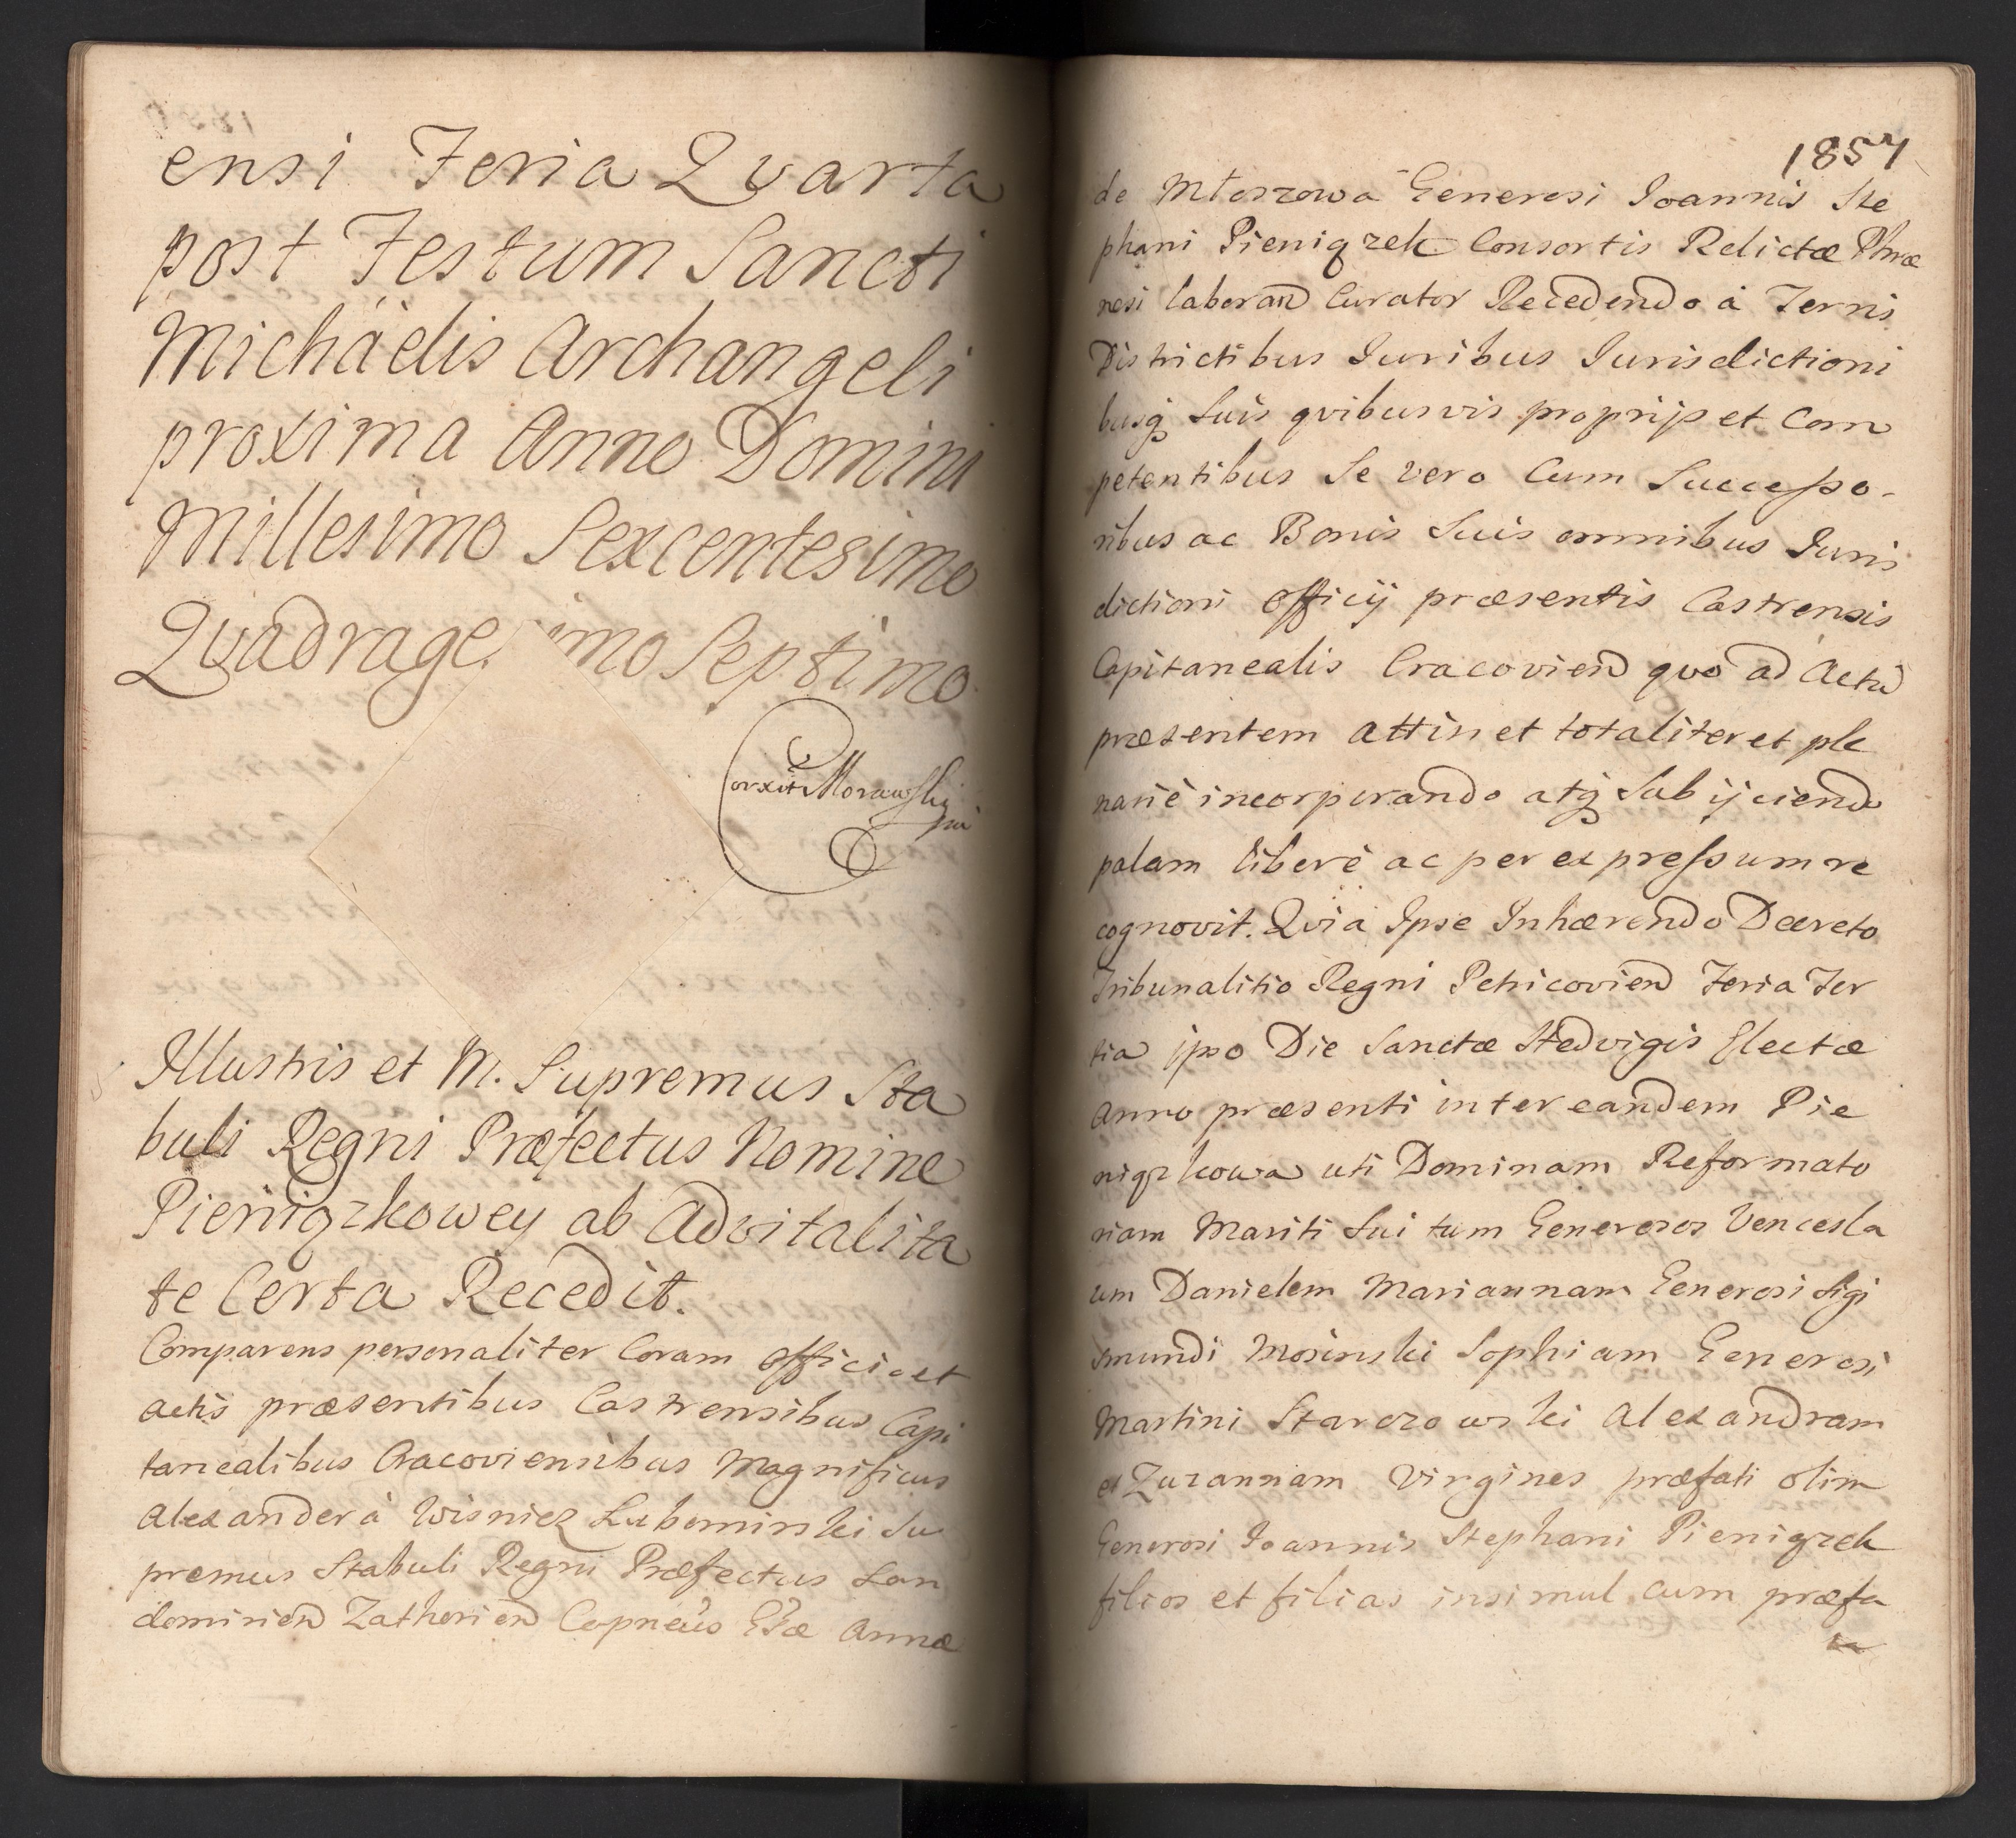 ensi Feria Qvarta
post Festum Sancti
Michäelis Archangeli
proxima Anno Domini
Millesimo Sexcentesimo
Qvadrage imo Septimo
Corxit Morawski
Illustris et M. Supremus Sta
buli Regni Præfectus Nomine
Pieniązkowey ab Advitalita
te Certa Recedit.
Comparens personaliter Coram Officio et
Actis præsentibus Castrensibus Capi
tanealibus Cracoviensibus Magnificus
Alexander à Wisnicz Lubomirski Su
premus Stabuli Regni Præfectus San
domirien Zathorien Capneus Annæ
1857
de Młoszowa Generosi Ioannis Ste
phani Pieniązek Consortis Relictæ Phræ
nesi laboran Curator Recedendo à Terris
Districtibus Iuribus Iurisdictioni
busq Suis qvibusvis proprijs et Com
petentibus Se vero Cum Successo-
ribus ac Bonis Suis omnibus Iuris
dictioni Officij præsentis Castrensis
Capitanealis Cracovien qvo ad Actu
præsentem attinet totaliter et ple
nariè incorporando atq Subijciendo
palam liberè ac per expressum re
cognovit. Qvia Ipse Inhærendo Decreto
Tribunalitio Regni Petricovien Feria Ter
tia ipso Die Sanctæ Hedvigis Electæ
Anno præsenti inter eandem Pie
niązkowa uti Dominam Reformato
riam Mariti Sui tum Generosos Vencesla
um Danielem Mariannam Generosi Sigi
smundi Mosinski Sophiam Generosi
Martini Starozowski Alexandram
et Zuzannam Virgines præfati olim
Generosi Ioannis Stephani Pieniązek
filios et filias insimul cum præfa
ta